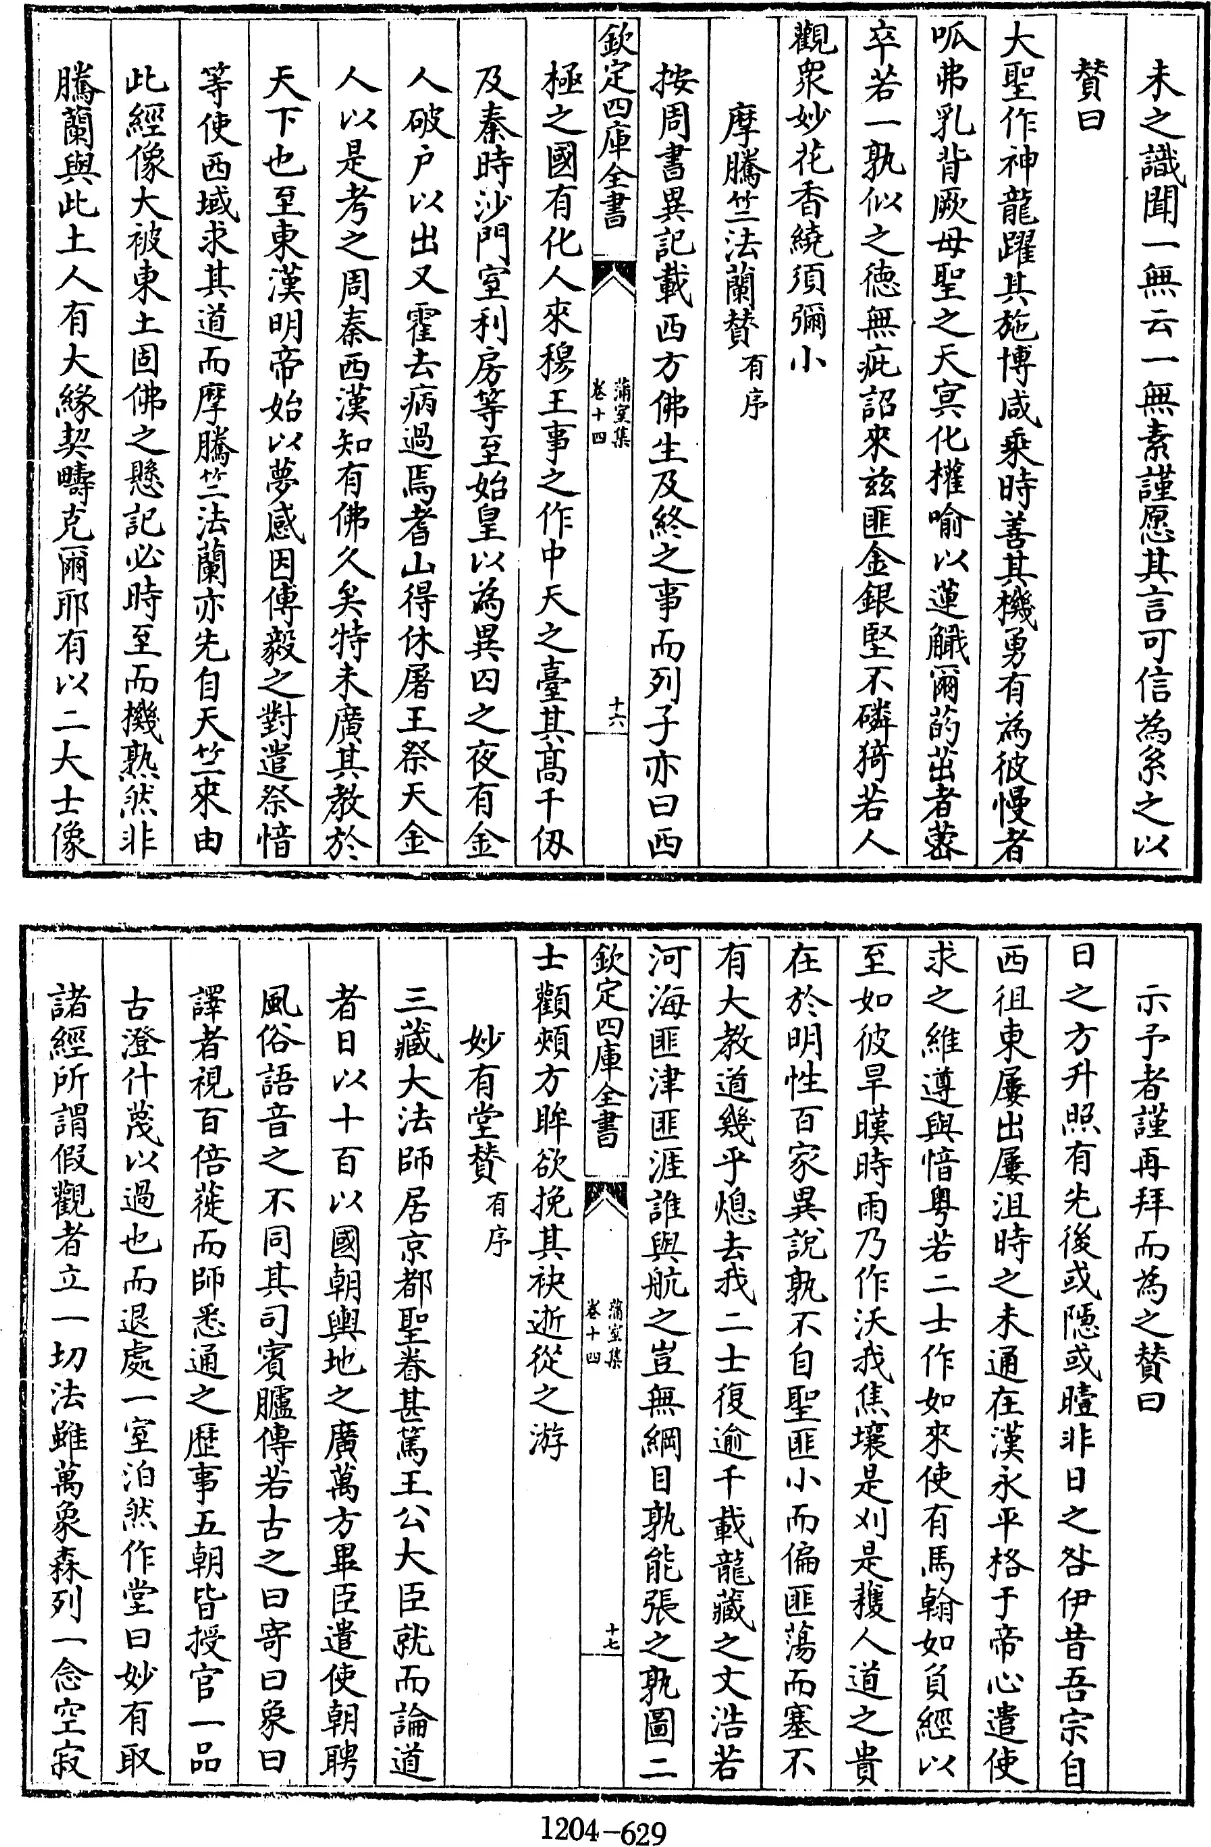 未之識聞一無云一無素謹愿其言可信為系之以
贊曰
大聖作神龍躍其施博咸乘時善其機勇有為彼慢者
呱弗乳背厥母聖之天冥化權喻以蓮觿爾菂茁者蔤
卒若一孰似之德無疵詔來兹匪金銀堅不磷猗若人
觀衆妙花香繞須彌小
摩騰竺法蘭贊有序
按周書異記載西方佛生及終之事而列子亦曰西
欽定四庫全書
蒲室集
卷十四
十六
極之國有化人來穆王事之作中天之臺其髙千仞
及秦時沙門室利房等至始皇以為異囚之夜有金
人破户以出又霍去病過焉耆山得休屠王祭天金
人以是考之周秦西漢知有佛久矣特未廣其教於
天下也至東漢明帝始以夢感因傅毅之對遣祭愔
等使西域求其道而摩騰竺法蘭亦先自天竺來由
此經像大被東土固佛之懸記必時至而機熟然非
騰蘭與此土人有大緣契疇克爾耶有以二大士像
示予者謹再拜而為之贊曰
日之方升照有先後或隱或曀非日之咎伊昔吾宗自
西徂東屢出屢沮時之未通在漢永平格于帝心遣使
求之維遵與愔粵若二士作如來使有馬翰如負經以
至如彼旱暵時雨乃作沃我焦壤是刈是穫人道之貴
在於明性百家異説孰不自聖匪小而偏匪蕩而塞不
有大教道幾乎熄去我二士復逾千載龍藏之文浩若
河海匪津匪涯誰與航之豈無綱目孰能張之孰圖二
欽定四庫全書
蒲室集
卷十四
十七
士顴頰方眸欲挽其袂逝從之游
妙有堂贊有序
三藏大法師居京都聖眷甚篤王公大臣就而論道
者日以十百以國朝輿地之廣萬方畢臣遣使朝聘
風俗語音之不同其司賓臚傳若古之曰寄曰象曰
譯者視百倍蓰而師悉通之歴事五朝皆授官一品
古澄什蔑以過也而退處一室泊然作堂曰妙有取
諸經所謂假觀者立一切法雖萬象森列一念空寂
1204-629